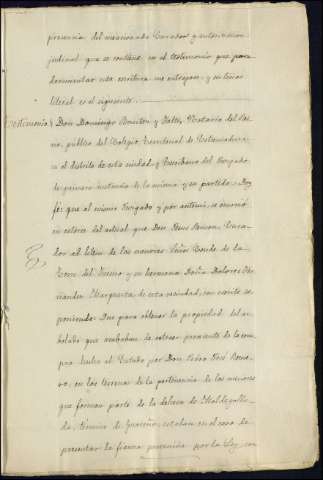 presencia del mencionado Curador y autorizacion
judicial que se contiene en el testimonio que para
documentar esta escritura me entregan, y su tenor
literal es el siguiente
Testimonio } Don Domingo Benitez y Valle, Notario del
publica del Colegio Territorial de Estremadura
en el distrito de esta ciudad, y Escribano del Juzgado
de primera instancia de la misma y su partido: Doy
fé: que al mismo Juzgado y por ante mi, se
en de actual que Don
dor ad litem de los menores Señor Conde de la
Torre del Fresno y su hermana Doña Dolores Fer-
nandez de esta vecindad, un escrito es-
poniendo: Que para obtener la propiedad del ar-
bolado que acababan de procedente de la com-
pra hecha al Estado por Don Pedro José
en los terrenos de la pertenencia de los menores
que forman parte de la dehesa de
da, término de Guareña, estaban en el caso de
presentar la fianza prevenida por la Ley, con